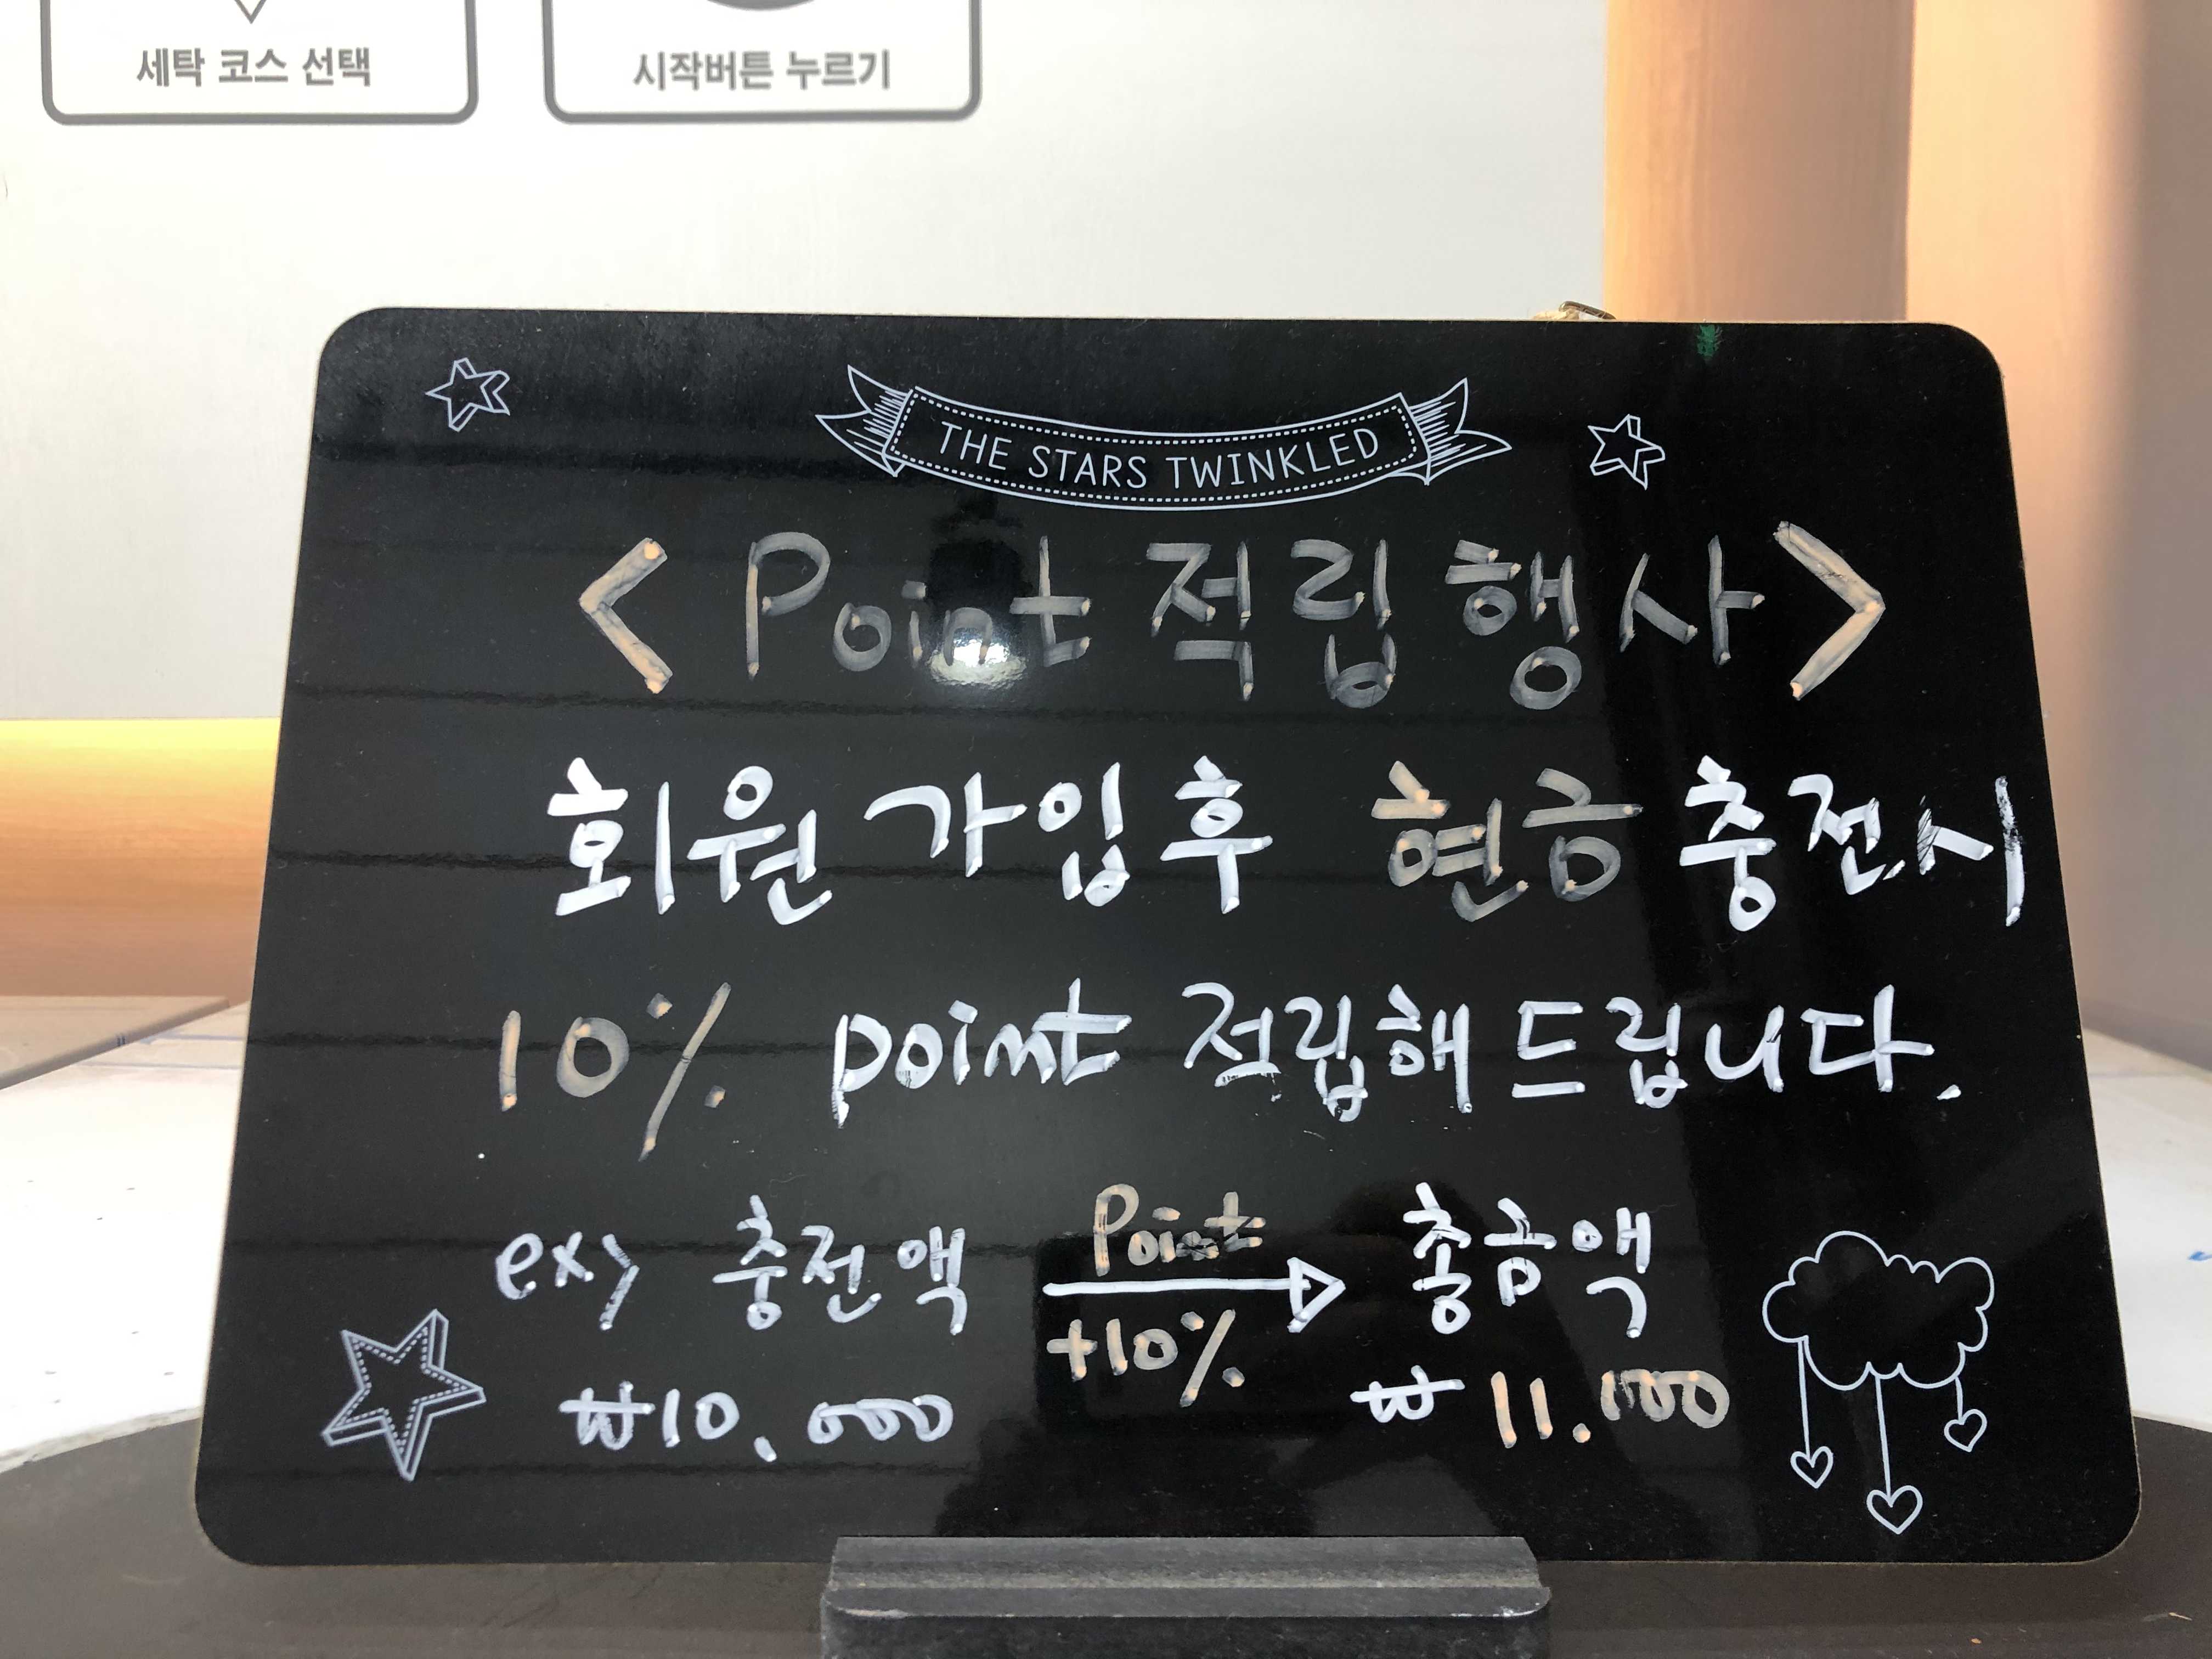 세탁 코스 선택
시작버튼 누르기
THE STARS TWINKLED
< Point 적립 행사 >
회원 가입 후 현금 충전시
10% point 적립해 드립니다.
ex> 충전액 Point 총금액
+10%
₩10,000 ₩11.100